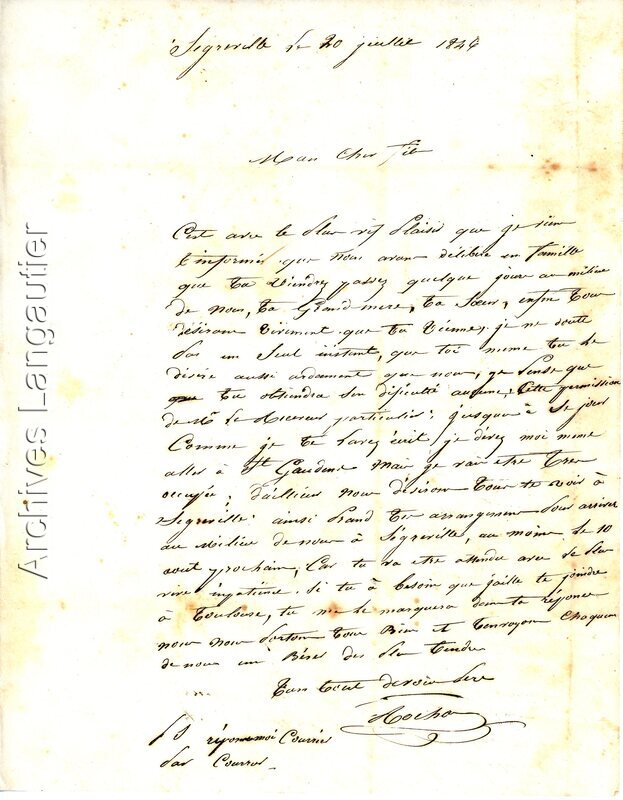 Ségreville le 20 juillet 1846
Mon Cher fils
C'est avec le plus vif plaisir que je vien
t'informer que nous avon délibéré en famille
que tu viendrez passez quelque jours au milieu
de nous, ta Grand mere, ta Sœur, enfin tous
désirons vivement que tu vienne, je ne doute
pas un seul instant, que toi meme tu le
désire aussi ardament que nous, je pense que
tu obtiendra sen dificulté aucune, cette permission
de Mr le Receveur particulier; jusqu'à se jour
Comme je te l'avez écrit je dévez moi meme
aller à St Gaudens mais je vais etre tres
occupée; d'ailleurs nous désirons tous te voir à
Ségreville; ainsi prand tes arrangement pour arriver
au milieu de nous à Ségreville, au moins le 10
août prochain, Car tu va etre attendu avec la plus
vive inpatience. Si tu à besoin que j'aille te joindre
à Toulouse, tu me le marquera dans ta réponce
nous nous porton tous Bien et t'envoyon chaqun
de nous un Béser des plus tendre
Ton tout dévoué pere
Rocher
PS réponsmoi Courrier
par Courrier
Archives Langautier